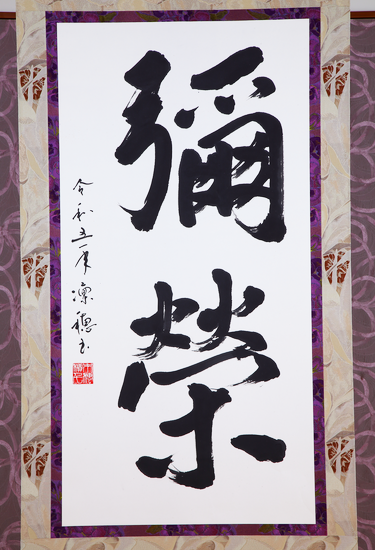 彌榮
令和五年 凛穂書